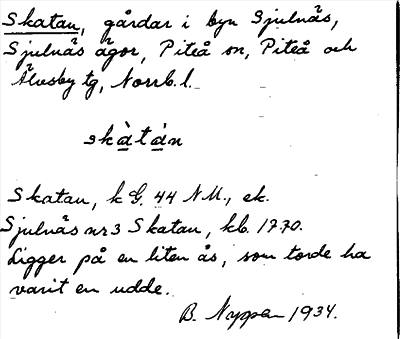 Skatan, gårdar i byn Sjulnäs,
Sjulnäs ägor, Piteå sn, Piteå och
Älvsby tg, Norrb. l.
skàtán
Skatan, k G. 44 NM., ek.
Sjulnäs nr 3 Skatan, kb. 1770.
Ligger på en liten ås, som torde ha
varit en udde.
B. Nygren 1934.